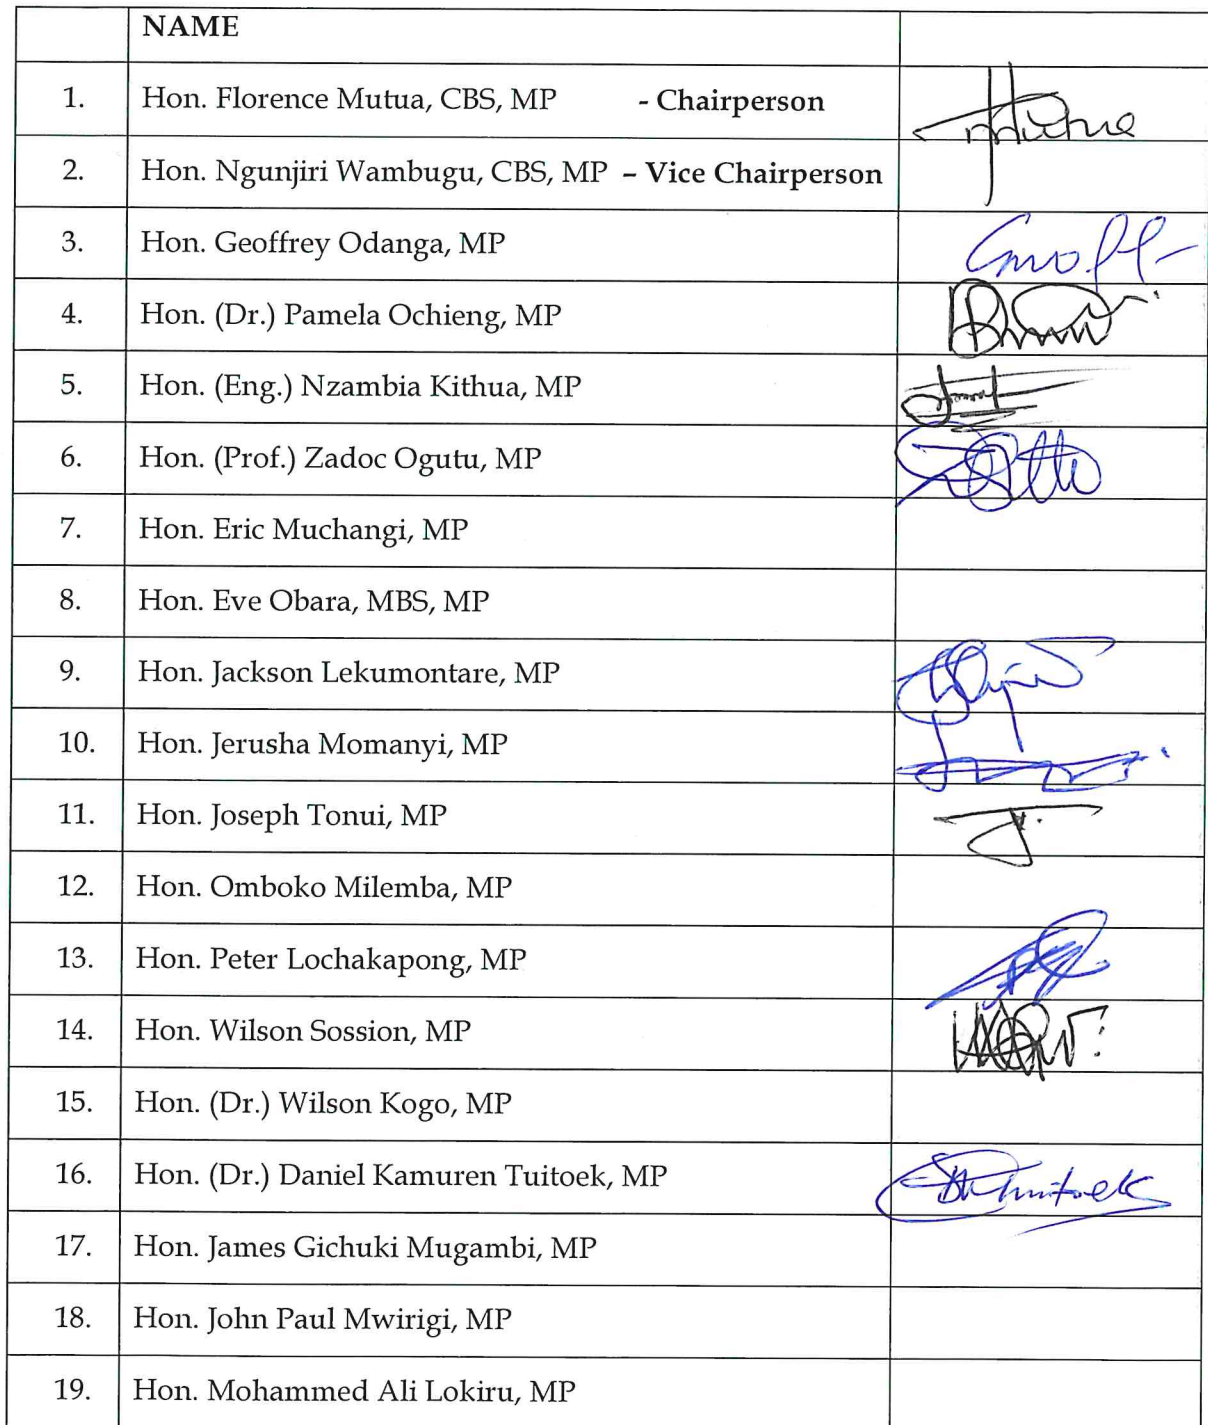 NAME
1. Hon. Florence Mutua, CBS, MP - Chairperson
2. Hon. Ngunjiri Wambugu, CBS, MP – Vice Chairperson
3. Hon. Geoffrey Odanga, MP
4. Hon. (Dr.) Pamela Ochieng, MP
5. Hon. (Eng.) Nzambia Kithua, MP
6. Hon. (Prof.) Zadoc Ogutu, MP
7. Hon. Eric Muchangi, MP
8. Hon. Eve Obara, MBS, MP
9. Hon. Jackson Lekumontare, MP
10. Hon. Jerusha Momanyi, MP
11. Hon. Joseph Tonui, MP
12. Hon. Omboko Milemba, MP
13. Hon. Peter Lochakapong, MP
14. Hon. Wilson Sossion, MP
15. Hon. (Dr.) Wilson Kogo, MP
16. Hon. (Dr.) Daniel Kamuren Tuitoek, MP
17. Hon. James Gichuki Mugambi, MP
18. Hon. John Paul Mwirigi, MP
19. Hon. Mohammed Ali Lokiru, MP